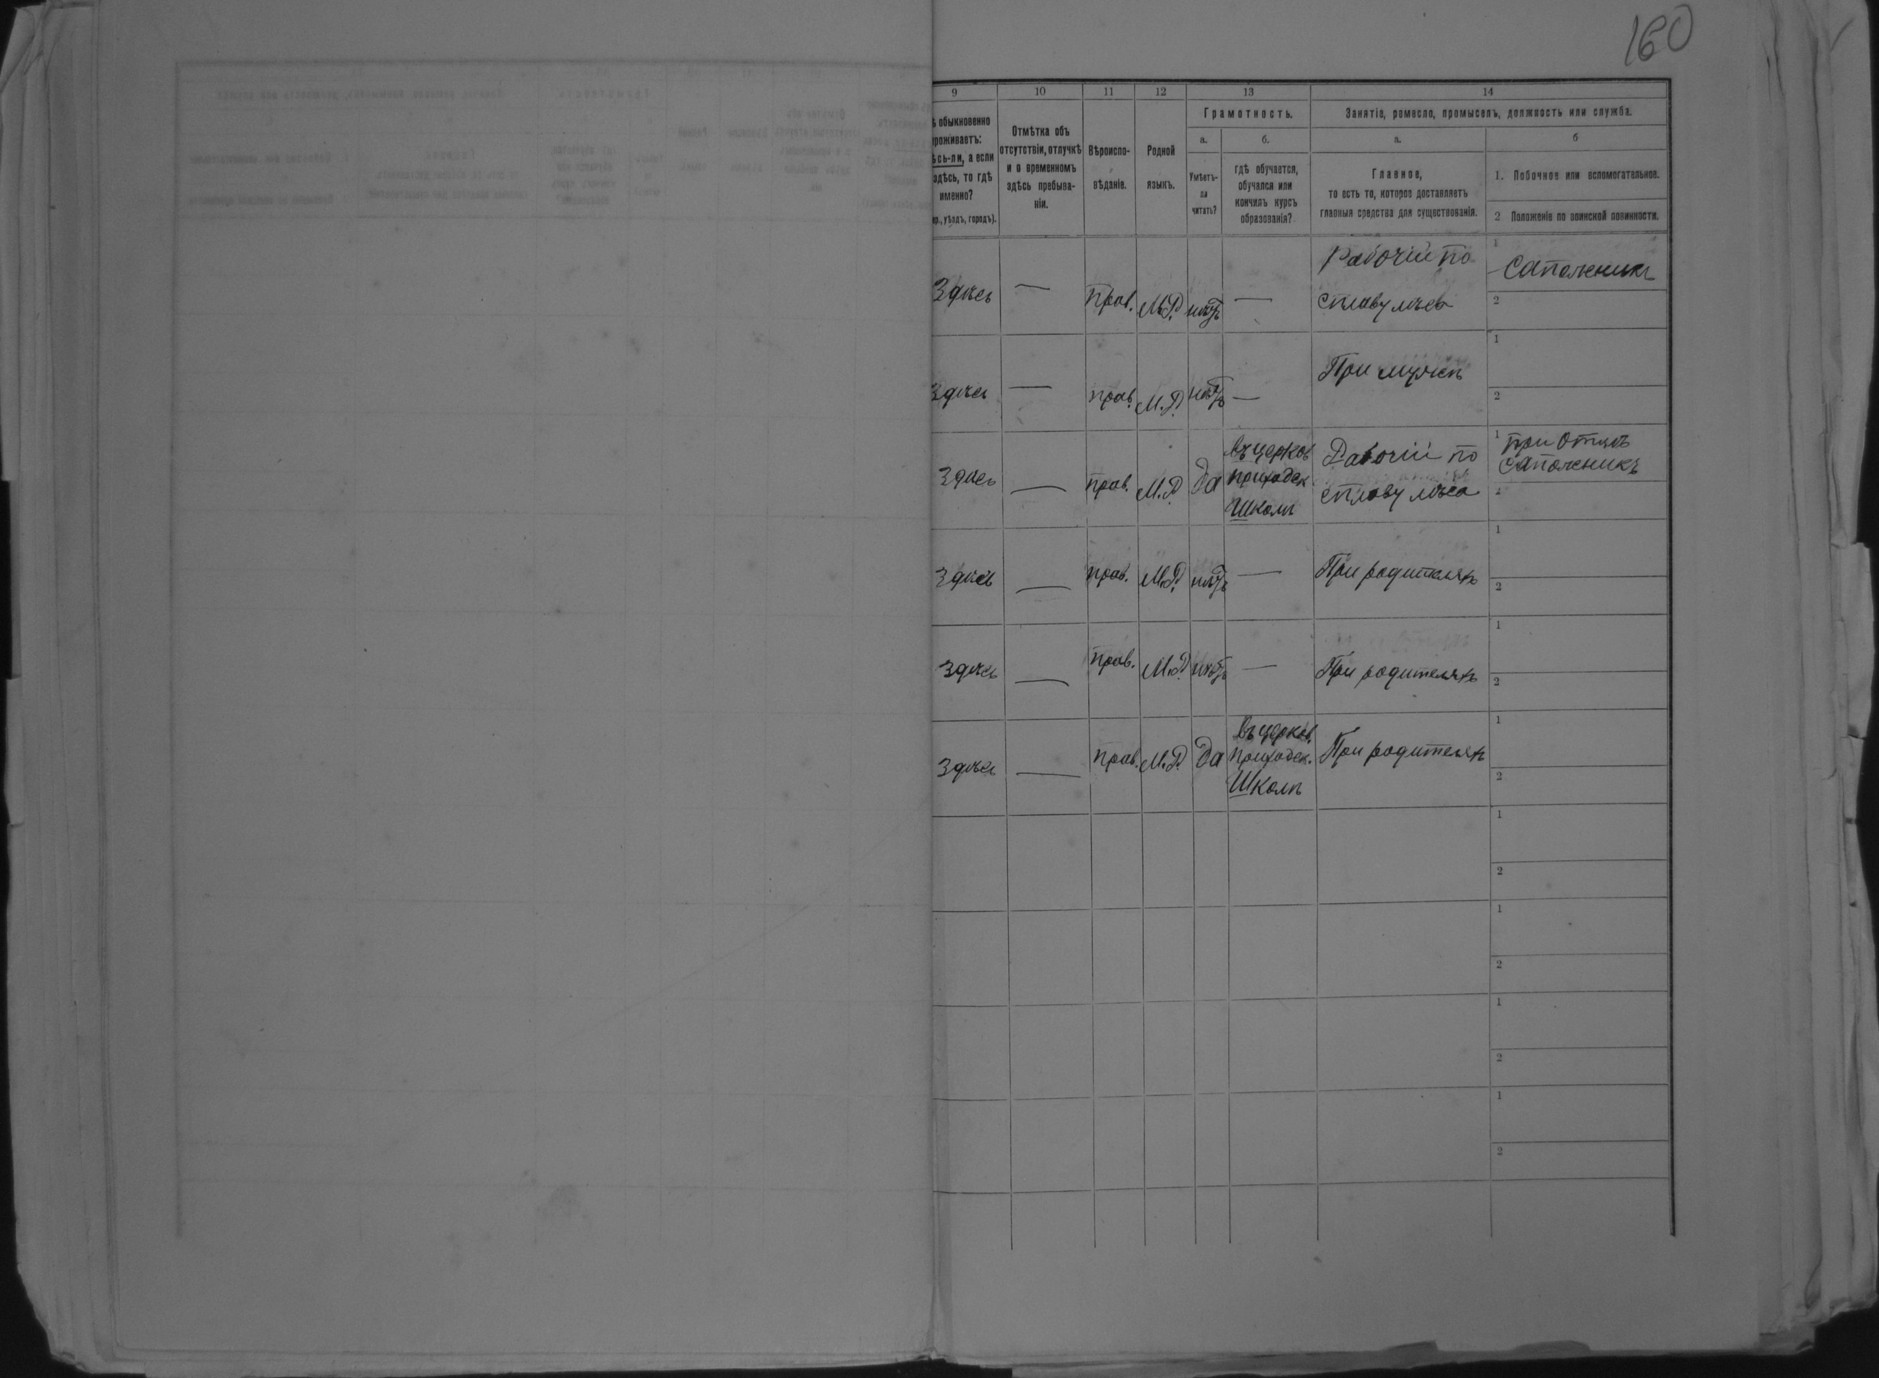 160
9 10 11 12 13 14
обыкновенно
проживаетъ:
здѣсь-ли, а если
не здѣсь, то гдѣ
именно?
уѣздъ, городъ).
Отмѣтка объ
отсутствіи, отлучкѣ
и о временномъ
здѣсь пребыва-
ніи.
Вѣроиспо-
вѣданіе.
Родной
языкъ.
Грамотность.
а.
Умѣетъ-
ли
читать?
б.
Гдѣ обучается,
обучался или
кончилъ курсъ
образованія?
Занятіе, ремесло, промыселъ, должность или служба.
а.
Главное,
то есть то, которое доставляетъ
главныя средства для существованія.
б
1. Побочное или вспомогательное.
2 Положеніе по воинской повинности.
Здѣсь — прав. М.Р. нѣтъ —
Рабочій по
сплаву лѣса
1 Сапожникъ
2
Здѣсь — прав. М.Р. нѣтъ —
При мужѣ
1
2
Здѣсь — прав. М.Р. Да
Въ церков
приходск
Школѣ
Рабочій по
сплаву лѣса
1 при отцѣ
Сапожникъ
2
Здѣсь — прав. М.Р. нѣтъ —
При родителяхъ
1
2
Здѣсь — прав. М.Р. нѣтъ —
При родителяхъ
1
2
Здѣсь — прав. М.Р. Да
Въ церков.
приходск.
Школѣ
При родителяхъ
1
2
1
2
1
2
1
2
1
2